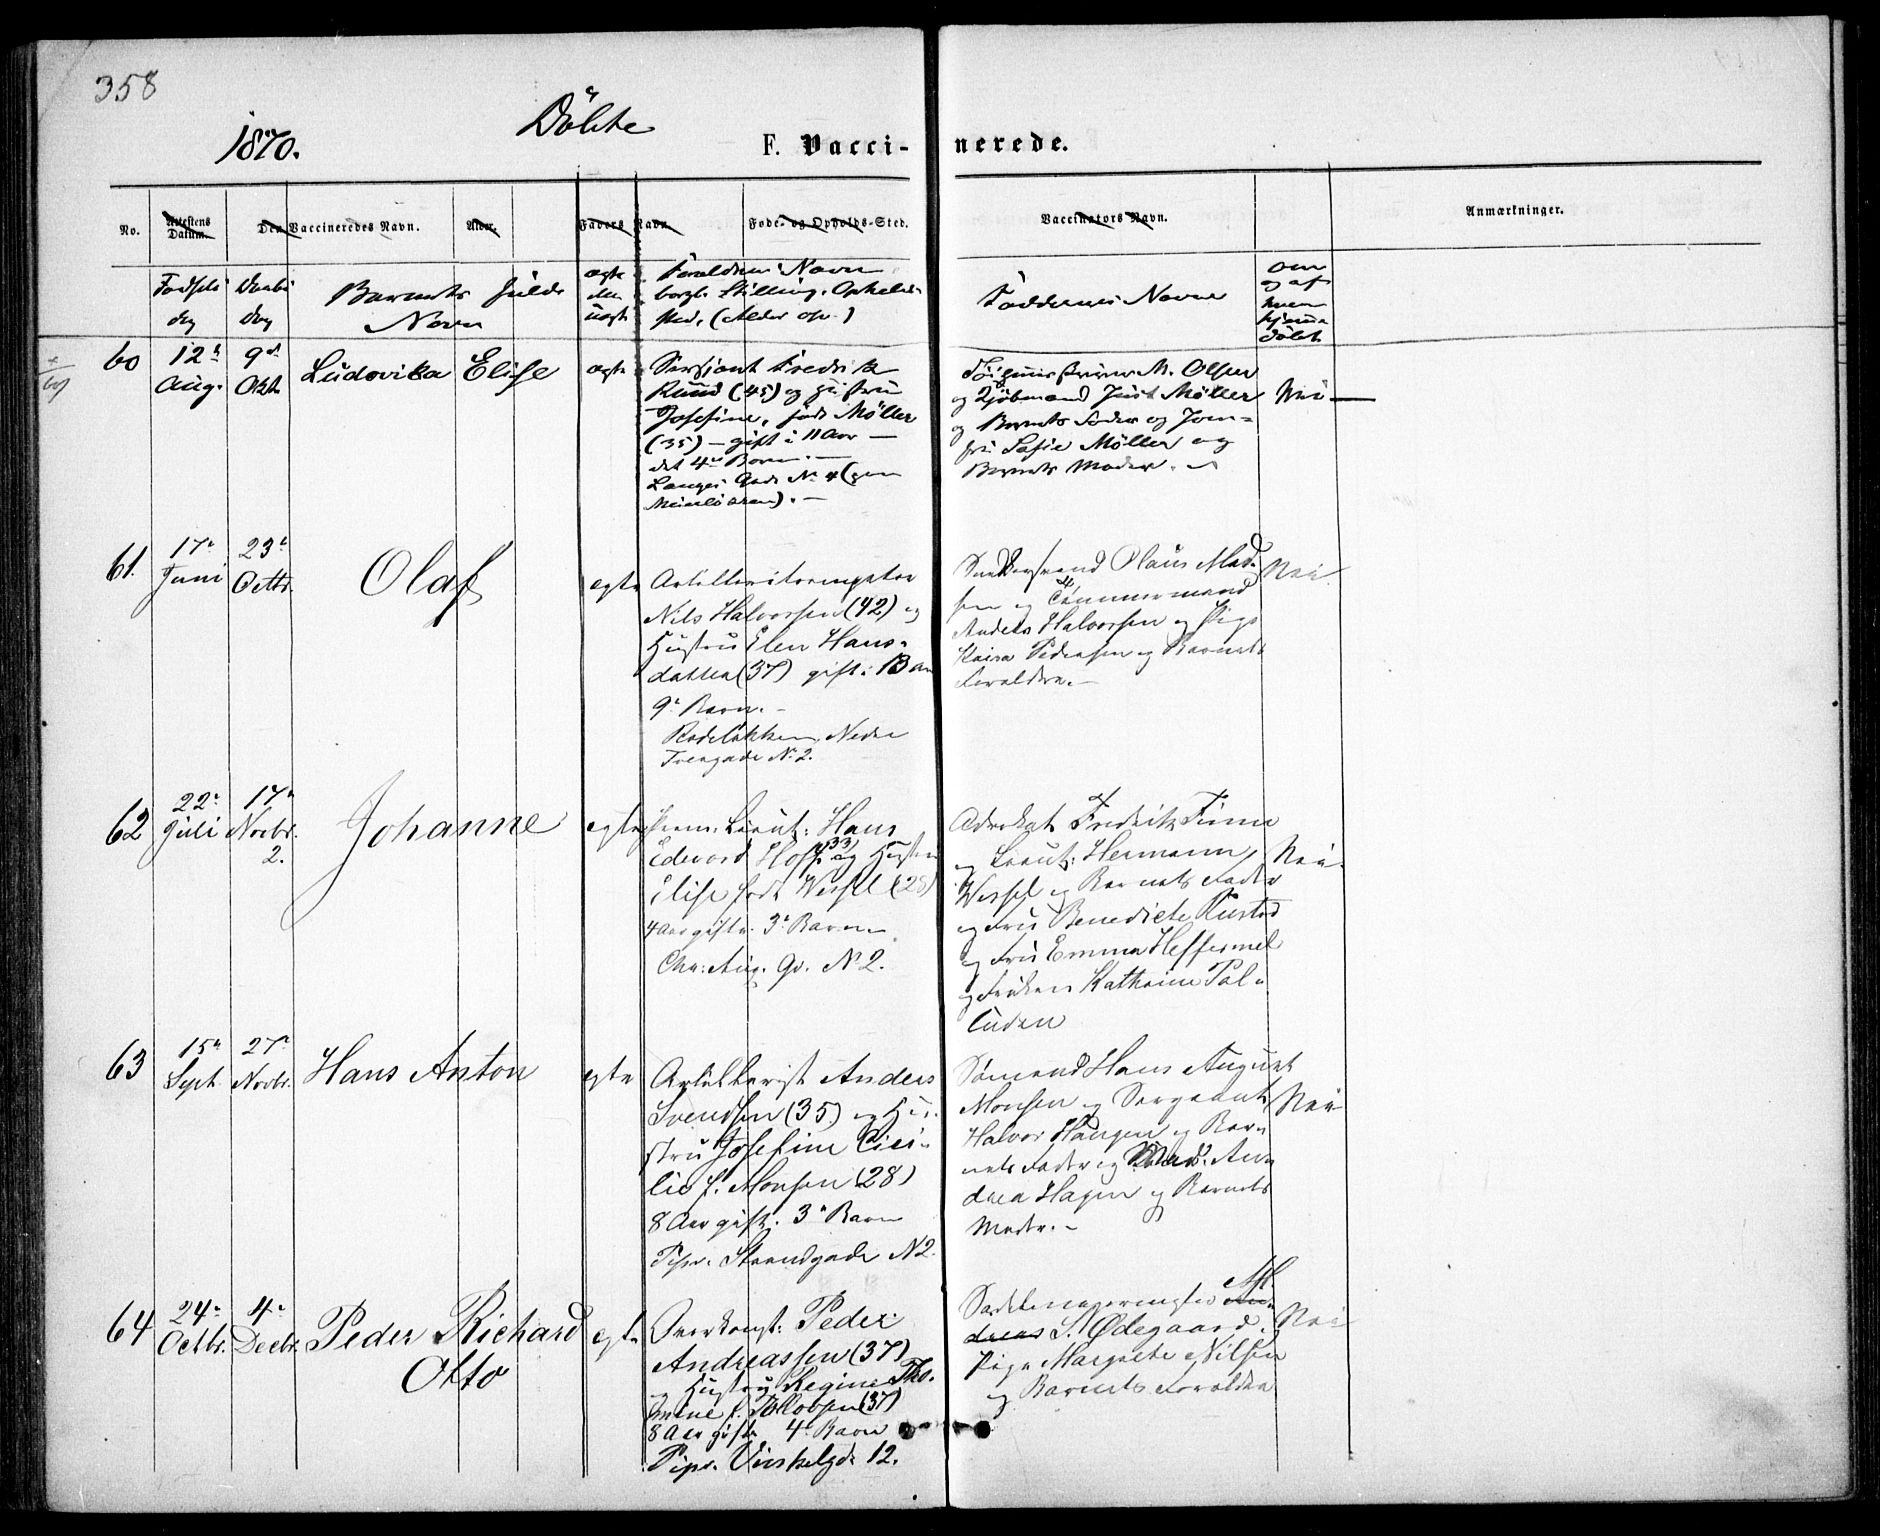 358
1870.
Döbte
F. Vacci-
nerede.
No.
Attestens Datum.
Den Vaccineredes Navn.
Alder.
Faders Navn
Føde- og Opholds-Sted.
Vaccinators Navn.
Anmærkninger.
Fødsels dag
Daabs dag
Barnets fulde
Navn
ægte
uægte
Forældrenes Navn
borgl. Stilling, Opholds-
sted, (Alder &c.)
Faddernes Navne
om
og af
hvem
hjemme
døbt
60
12te
Aug.
9de
Okt.
Ludovika Elise
ægte
Sersjant Fredrik
Ruud (45) og Hustru
Josefine, født Møller
(35) – gift i 11 Aar –
det 4de Barn. –
Langes Gade No 4
og Kjöbmand Just Møller
og Barnets Fader og Jom-
fru Sofie Møller og
Barnets Moder.
Nei
61.
17de
Juni
23de
Octbr.
Olaf
egte
Nils Halvorsen (42) og
Hustru Elen Hans-
datter (37) gift i 13 Aar
9de Barn. –
Rodeløkken Nedre
No 2.
Olaus Mad-
sen og Tömmermand
Anders Halvorsen og Pige
Pedersen og Barnets
Forældre. –
Nei
62
22de
Juli
17de
Novbr.
2.
Johanne
egte
Prem. Lieut: Hans
Edevard Hoff (33) og Hustru
Elise født Wessel (28)
4 Aar gifte. 3de Barn
Chr: Aug. Gd. No 2.
Advokat Fredrik Finne
og Lieut: Hermann
Wessel og Barnets Fader
og Fru Benedicte
og Fru Emma Heffermel
og Frøken Kathrine Pal-
luden
Nei.
63
15de
Sept.
27de
Novbr.
Hans Anton
egte
Artillerist Anders
Svendsen (35) og Hu-
stru Josefine Ceci-
lie f. Monsen (28)
8 Aar gift. 3de Barn
Piper. Strandgade No 2.
Sømand Hans August
Monsen og Sergeant
Halvor Haugen og Bar-
nets Fader og Mad. An-
drea Hagen og Barnets
Moder. –
Nei
64
24de
Octbr.
4de
Decbr.
Peder Richard
Otto
egte
Overkonst: Peder
Andreassen (37)
og Hustru Regine Tho-
mine f. Jakobsen (37)
8 Aar gifte 4de Barn
Piper. Vinkelgd. 12.
Sadelmagermester
S. Ødegaard.
Pige Margrete Nilsen
og Barnets Forældre
Nei